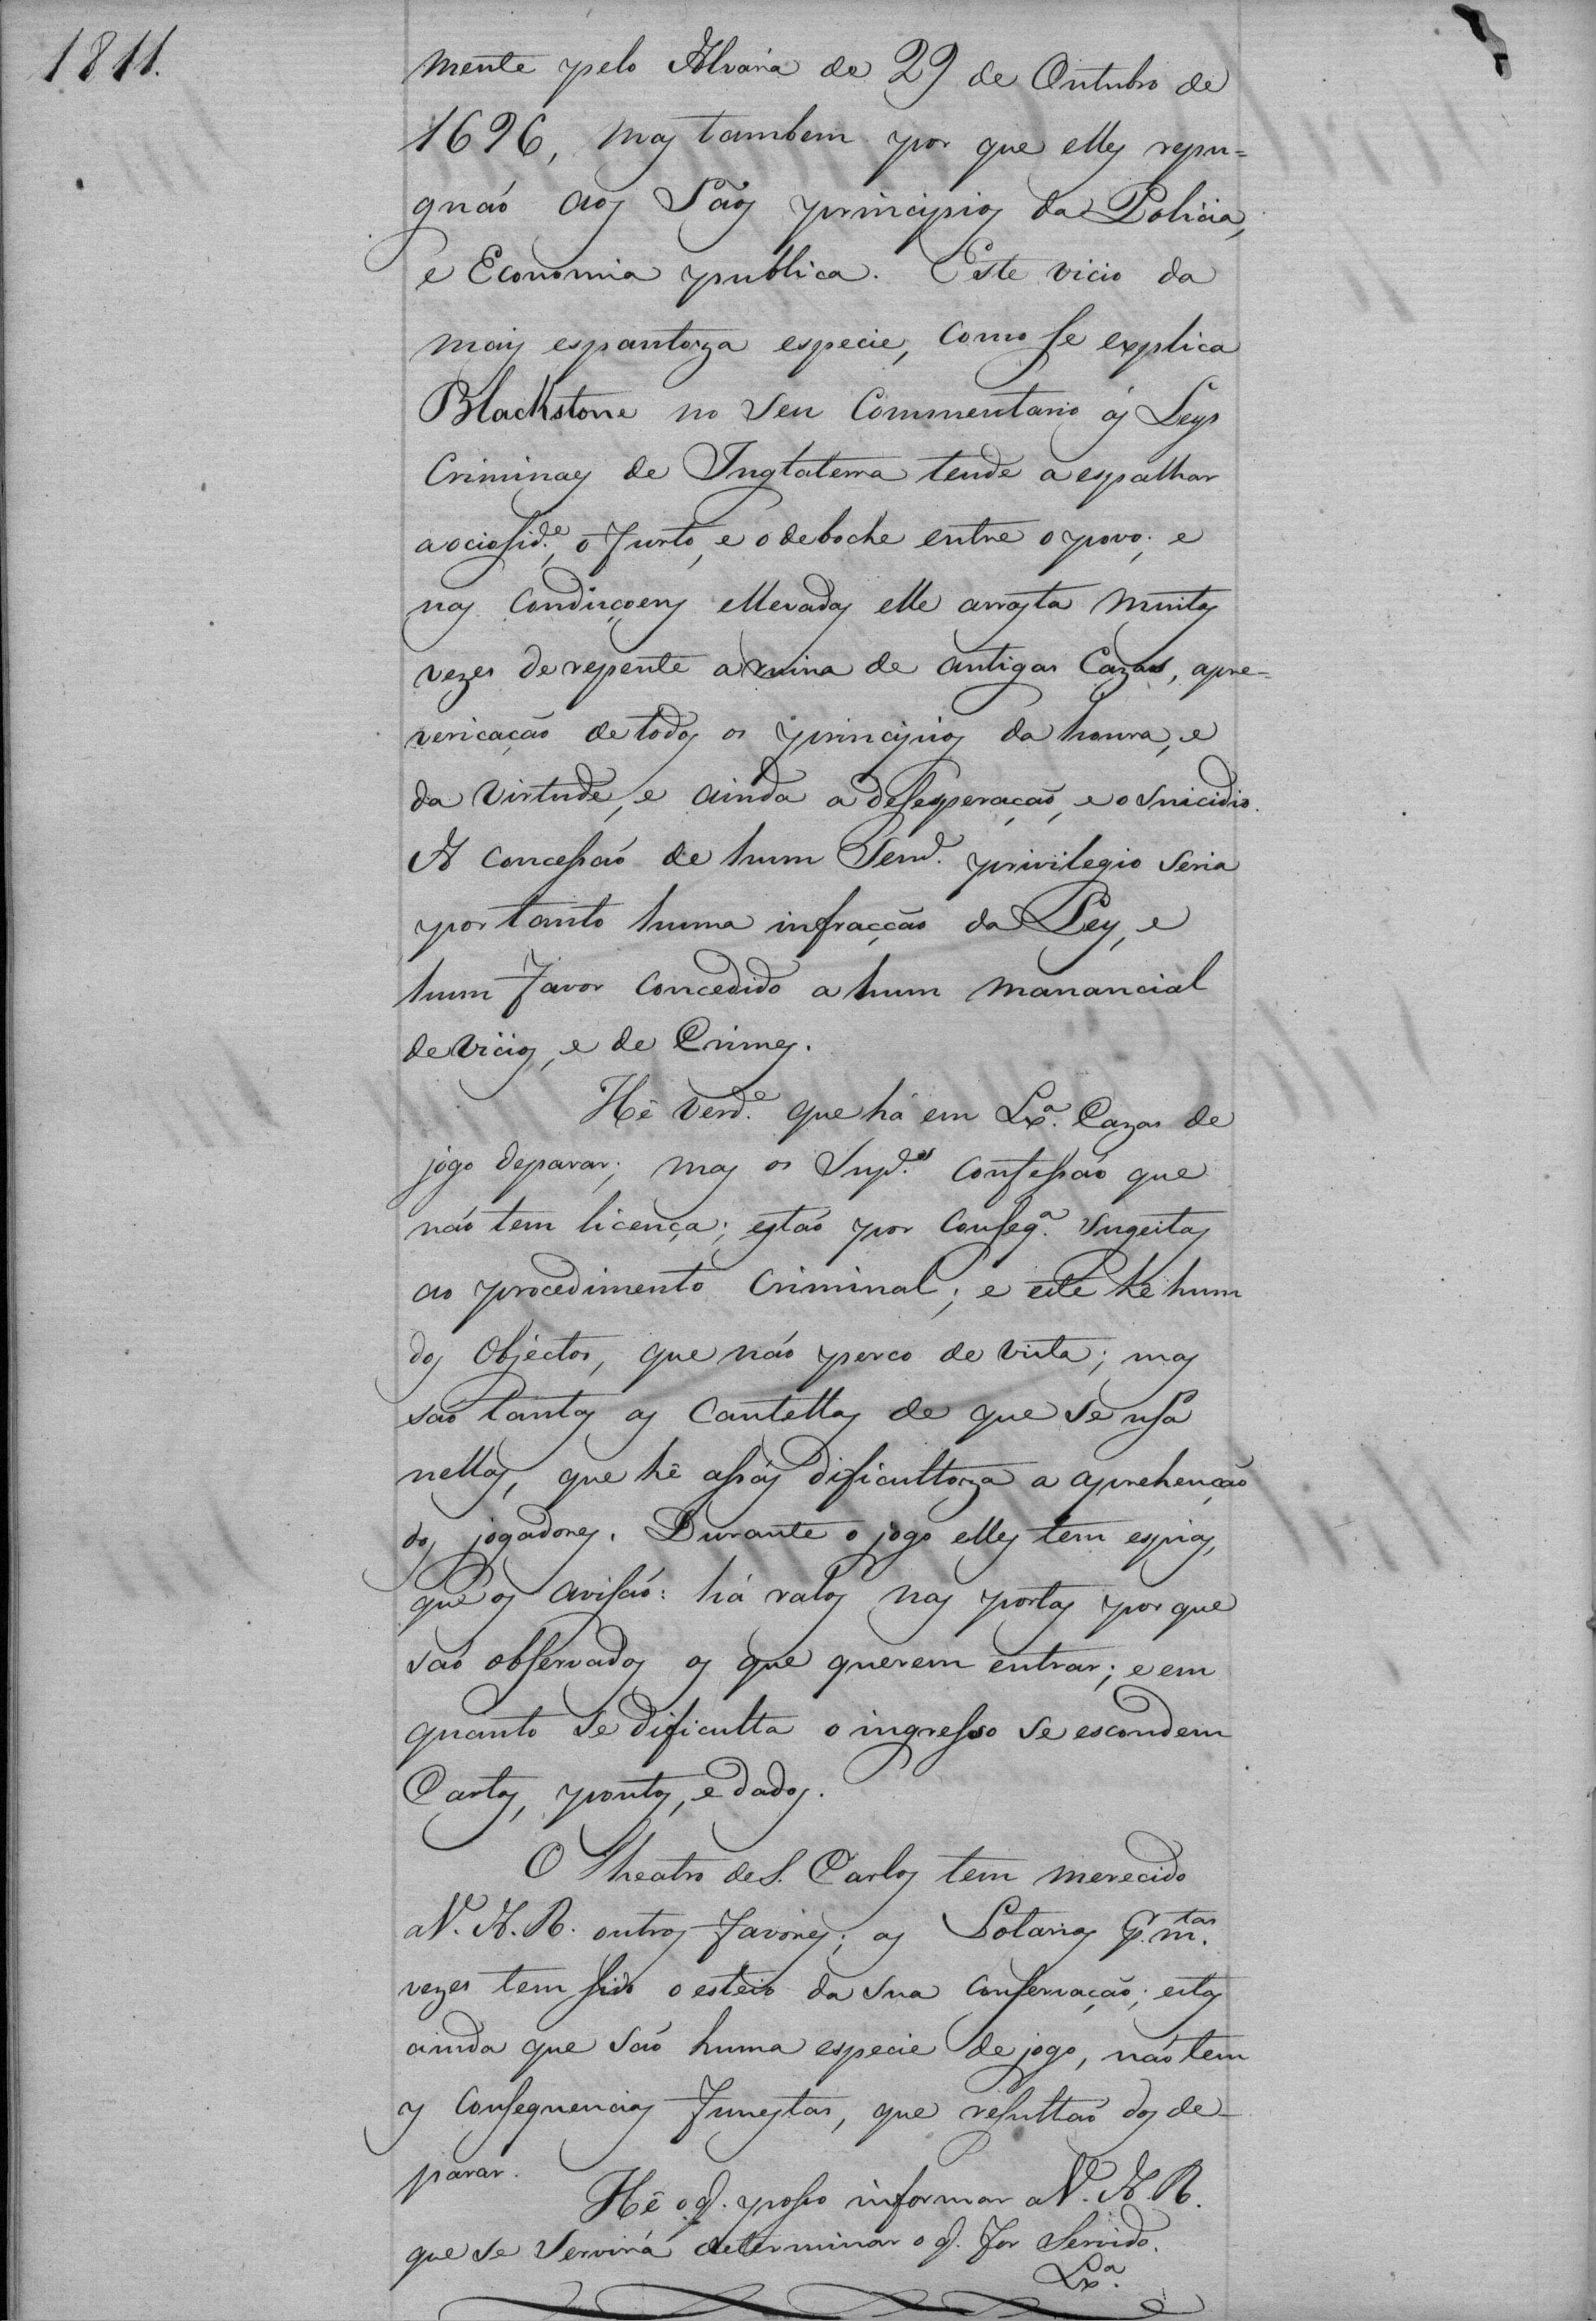 1811.
mente pelo Alvará de 29 de Outubro de
1696, mas tambem por que elles repu=
gnaó aos Sãos principios da Policia,
e Economia publica. Este vicio da
mais espantoza especie, como se explica
Blackstone no seu Commentario ás Leys
Criminaes de Inglaterra tende a espalhar
a ociosid.e, o furto, e o deboche entre o povo; e
nas Condiçoens ellevadas elle arrasta muitas
vezes de repente a ruina de antigas Cazas, a pre=
vericação de todos os principios da honra, e
da virtude, e ainda a desesperação, e o suicidio.
A concessaó de hum Semd. privilegio seria
por tanto huma infracção da Ley, e
hum favor concedido a hum manancial
de vicios, e de Crimes.
Hé verd.e que há em Lx.a Cazas de
jogo de parar; mas os Supd.os confessaó que
naó tem licença; estaó por conseq.a sugeitas
ao procedimento Criminal; e este hé hum
dos objectos, que naó perco de vista; mas
saó tantas as Cautellas de que se usa
nellas, que hé assás dificultoza a aprehenção
dos jogadores. Durante o jogo elles tem espias,
que os avisaó: há ralos nas portas por que
saó observados os que querem entrar; e em
quanto se dificulta o ingresso se escondem
Cartas, pontos, e dados.
O Theatro de S. Carlos tem merecido
a V. A. R. outros favores; as Lotarias p.r m.tas
vezes tem sido o esteio da sua conservação; estas
ainda que saó huma especie de jogo, naó tem
as consequencias funestas, que resultaó dos de
parar.
Hé o q. posso informar a V. A. R.
que se servirá determinar o q. for Servido.
Lx.a